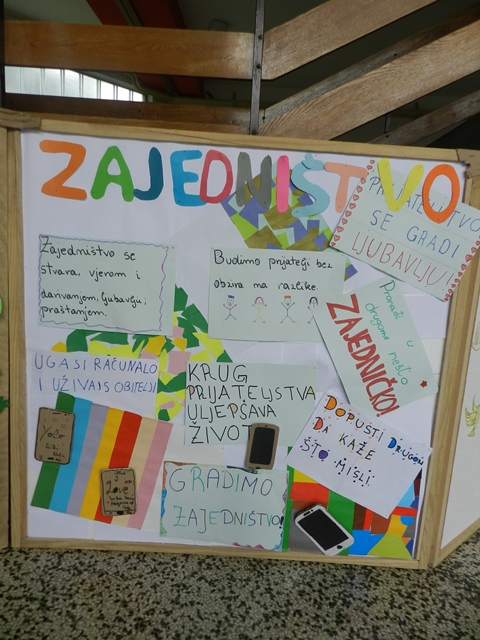 ZAJEDNIŠTVO
PRIJATELJSTVO
SE GRADI
LJUBAVLJU!
Zajedništvo se
stvara, vjerom i
darivanjem, ljubavlju i
praštanjem.
Budimo prijatelji bez
obzira na razlike.
Pronađi u
drugome nešto
ZAJEDNIČKO!
UGASI RAČUNALO
I UŽIVAJ S OBITELJI
KRUG
PRIJATELJSTVA
ULJEPŠAVA
ŽIVOT
DOPUSTI DRUGOM
DA KAŽE
ŠTO MISLI.
Yolo
Love
GRADIMO
ZAJEDNIŠTVO!